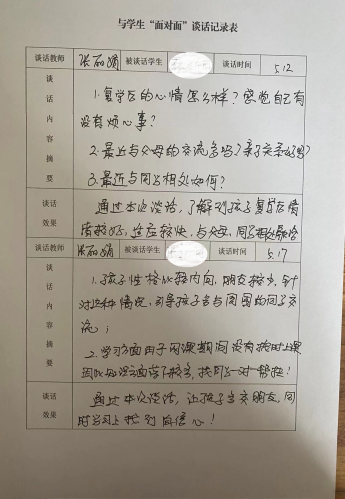 与学生“面对面”谈话记录表
谈话教师 张丽娟 被谈话学生 谈话时间 5.12
谈话内容摘要
1.复学后的心情怎么样？感觉自己有
没有烦心事？
2.最近与父母的交流多吗？亲子关系好吗？
3.最近与同学相处如何？
谈话效果
通过本次谈话，了解到孩子复学后情
绪较好，适应较快，与父母、同学相处融洽
谈话教师 张丽娟 被谈话学生 谈话时间 5.17
谈话内容摘要
1.孩子性格比较内向，朋友较少，针
对这种情况，引导孩子去与周围的同学交
流；
2.学习方面由于网课期间没有按时上课
因此知识方面落下较多，找同学一对一帮扶！
谈话效果
通过本次谈话，让孩子多交朋友，同
时学习上找到自信心！